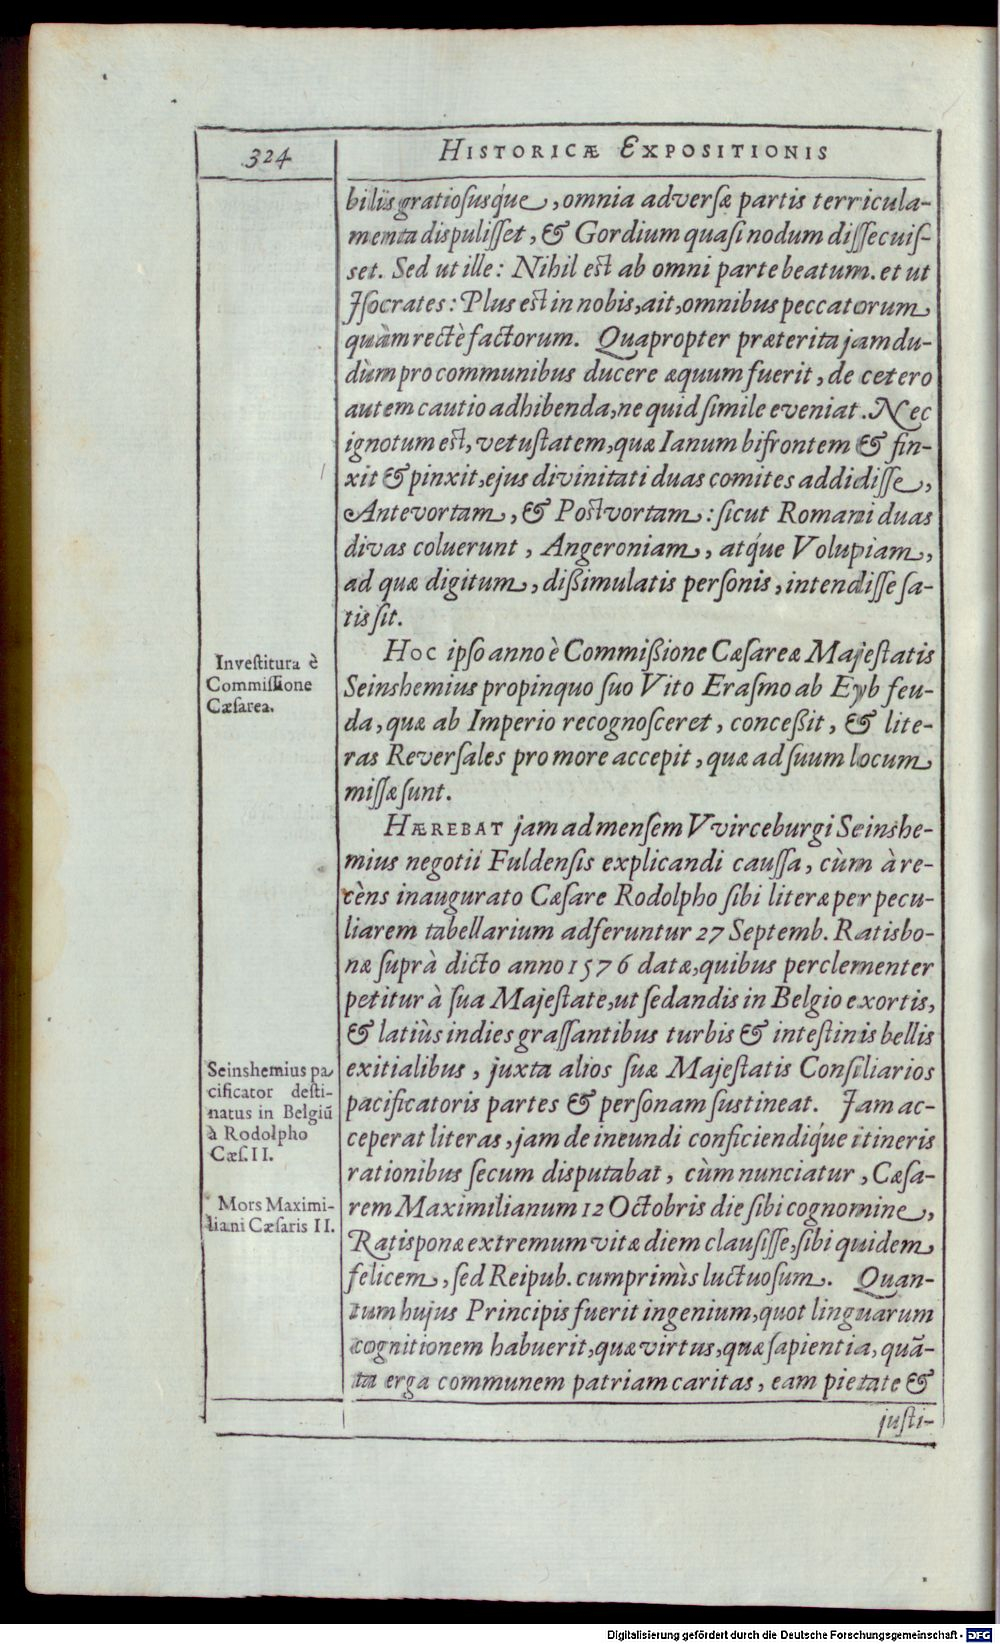 324
HISTORICÆ EXPOSITIONIS
biliis gratiosusq́ue, omnia adversæ partis terricula-
menta dispulisset, & Gordium quasi nodum dissecuis-
set. Sed ut ille: Nihil est ab omni parte beatum. et ut
Isocrates: Plus est in nobis, ait, omnibus peccatorum,
quàm rectè factorum. Quapropter præterita jamdu-
dùm pro communibus ducere æquum fuerit, de cetero
autem cautio adhibenda, ne quid simile eveniat. Nec
ignotum est, vetustatem, quæ Ianum bifrontem & fin-
xit & pinxit, ejus divinitati duas comites addidisse,
Antevortam, & Postvortam: sicut Romani duas
divas coluerunt, Angeroniam, atq́ue Volupiam,
ad quæ digitum, dißimulatis personis, intendisse sa-
tis sit.
Investitura è
Commissione
Cæsarea.
HOC ipso anno è Commißione Cæsareæ Majestatis
Seinshemius propinquo suo Vito Erasmo ab Eyb feu-
da, quæ ab Imperio recognosceret, conceßit, & lite-
ras Reversales pro more accepit, quæ ad suum locum
missæ sunt.
HÆREBAT jam ad mensem Vvirceburgi Seinshe-
mius negotii Fuldensis explicandi caussa, cùm à re-
cèns inaugurato Cæsare Rodolpho sibi literæ per pecu-
liarem tabellarium adferuntur 27 Septemb. Ratisbo-
næ suprà dicto anno 1576 datæ, quibus perclementer
petitur à sua Majestate, ut sedandis in Belgio exortis,
& latiùs indies grassantibus turbis & intestinis bellis
exitialibus, juxta alios suæ Majestatis Consiliarios
pacificatoris partes & personam sustineat. Jam ac-
ceperat literas, jam de ineundi conficiendiq́ue itineris
rationibus secum disputabat, cùm nunciatur, Cæsa-
rem Maximilianum 12 Octobris die sibi cognomine,
Ratisponæ extremum vitæ diem clausisse, sibi quidem
felicem, sed Reipub. cumprimìs luctuosum. Quan-
tum hujus Principis fuerit ingenium, quot linguarum
cognitionem habuerit, quæ virtus, quæ sapientia, quã-
ta erga communem patriam caritas, eam pietate &
Seinshemius pa
cificator desti-
natus in Belgiũ
à Rodolpho
Cæs. II.
Mors Maximi-
liani Cæsaris II.
justi-
Digitalisierung gefördert durch die Deutsche Forschungsgemeinschaft - DFG